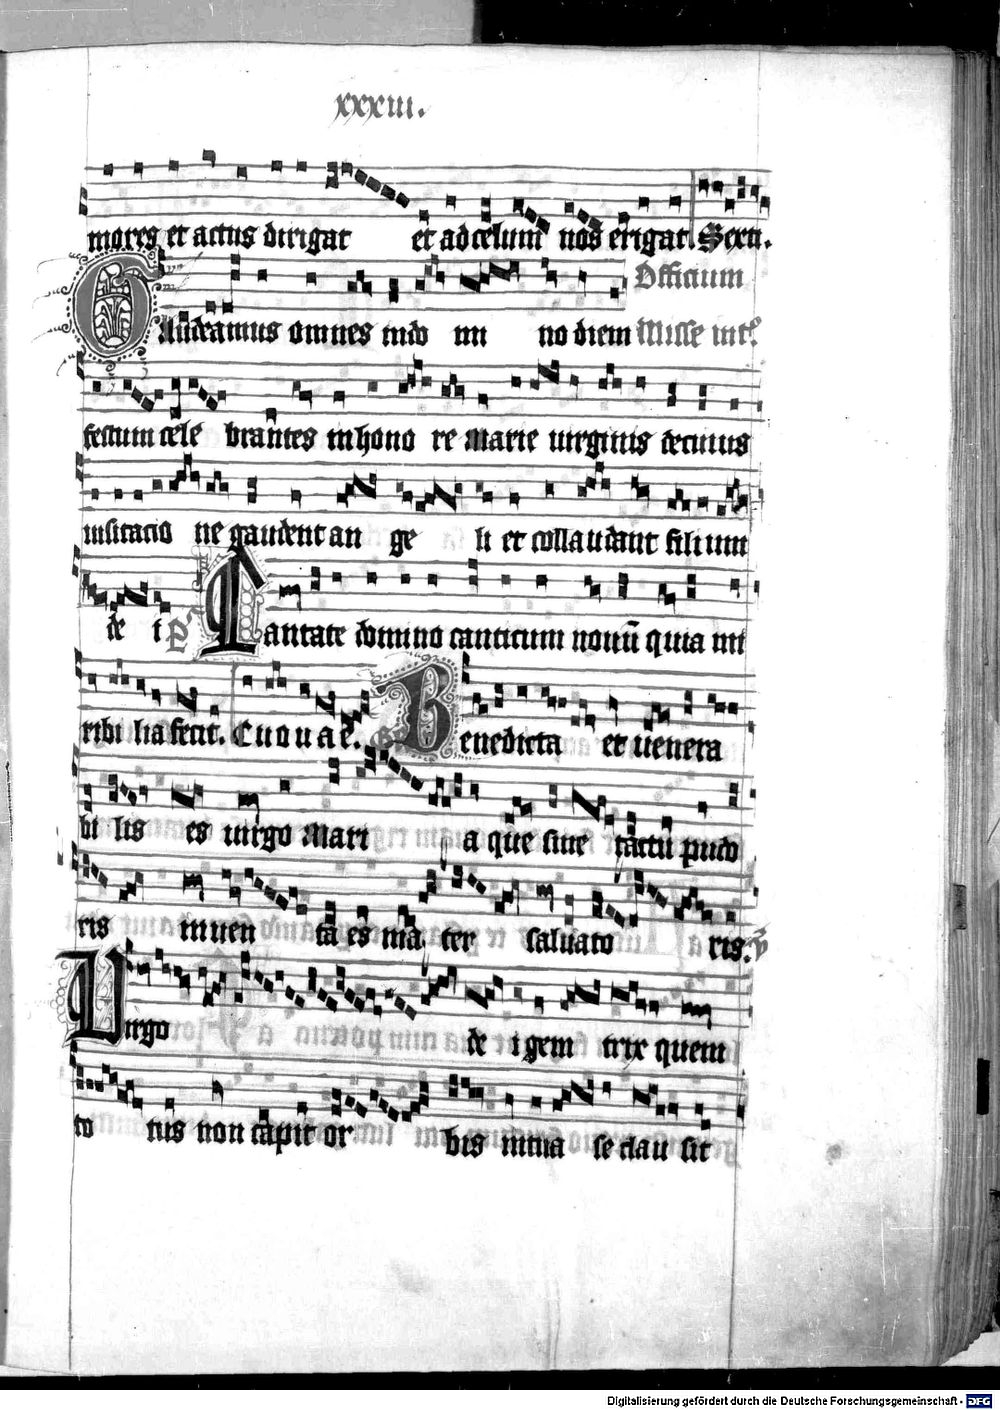 xxxiii.
mores et actus dirigat et ad celum nos erigat. Sexti.
Officium
Gaudeamus omnes in do mi no diem Misse int.
festum cele brantes in hono re marie uirginis de cuius
uisitacio ne gaudent an ge li et collaudant filium
de i ps Cantate domino canticum nouū quia mi
ribi lia fecit. Euouae. Gr Benedicta et uenera
bi lis es uirgo Mari a que sine tactu pudo
ris inuen ta es ma ter saluato ris. v
Virgo de i gem trix quem
to tus non capit or bis in tua se clau sit
Digitalisierung gefördert durch die Deutsche Forschungsgemeinschaft - DFG